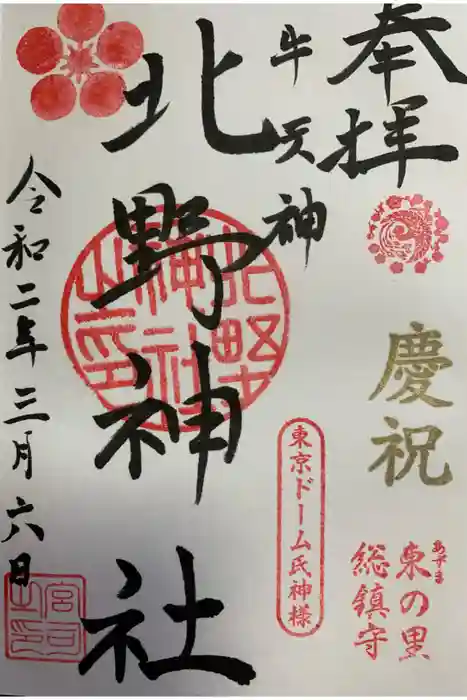 奉拝
慶祝
あずま
東の里
総鎮守
牛天神
東京ドーム氏神様
北野神社
北野神社之印
令和二年三月六日
宮司之印